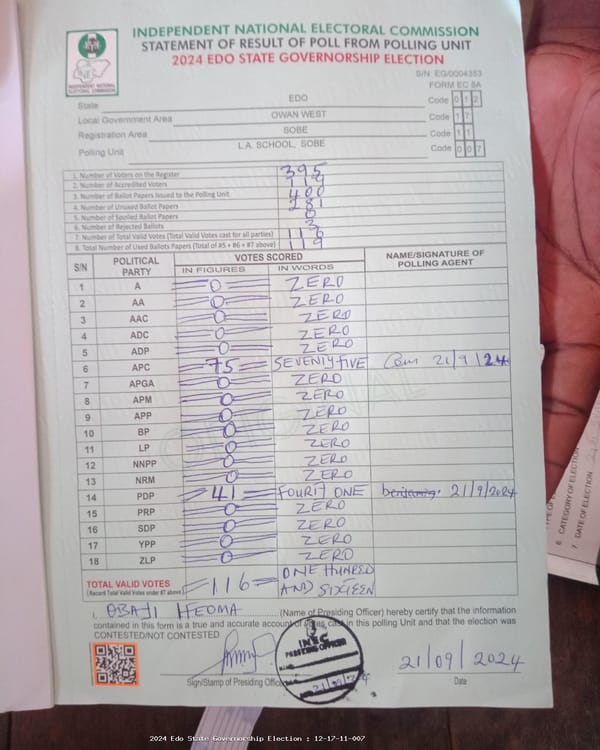 INDEPENDENT NATIONAL ELECTORAL COMMISSION
STATEMENT OF RESULT OF POLL FROM POLLING UNIT
2024 EDO STATE GOVERNORSHIP ELECTION
S/N: EG/0004353
FORM EC 8A
INEC
INDEPENDENT NATIONAL ELECTORAL COMMISSION
State EDO Code 0 1 2
Local Government Area OWAN WEST Code 1 7
Registration Area SOBE Code 1 1
Polling Unit L.A. SCHOOL, SOBE Code 0 0 7
1. Number of Voters on the Register 395
2. Number of Accredited Voters 119
3. Number of Ballot Papers Issued to the Polling Unit 400
4. Number of Unused Ballot Papers 281
5. Number of Spoiled Ballot Papers 0
6. Number of Rejected Ballots 3
7. Number of Total Valid Votes (Total Valid Votes cast for all parties) 116
8. Total Number of Used Ballots Papers (Total of #5 + #6 + #7 above) 119
S/N POLITICAL PARTY VOTES SCORED NAME/SIGNATURE OF POLLING AGENT
IN FIGURES IN WORDS
1 A 0 ZERO
2 AA 0 ZERO
3 AAC 0 ZERO
4 ADC 0 ZERO
5 ADP 0 ZERO
6 APC 75 SEVENLYFIVE 21/9/24
7 APGA 0 ZERO
8 APM 0 ZERO
9 APP 0 ZERO
10 BP 0 ZERO
11 LP 0 ZERO
12 NNPP 0 ZERO
13 NRM 0 ZERO
14 PDP 41 FOURIT ONE 21/9/2024
15 PRP 0 ZERO
16 SDP 0 ZERO
17 YPP 0 ZERO
18 ZLP 0 ZERO
TOTAL VALID VOTES 116 ONE HUNRED
(Record Total Valid Votes under #7 above) AND SIXTEEN
I, OBAJI (Name of Presiding Officer) hereby certify that the information
contained in this form is a true and accurate account of votes cast in this polling Unit and that the election was
CONTESTED/NOT CONTESTED
INEC
PRESIDING OFFICER
21/09/2024
Sign/Stamp of Presiding Officer
Date
6. CATEGORY OF ELECTION
7. DATE OF ELECTION
2024 Edo State Governorship Election : 12-17-11-007